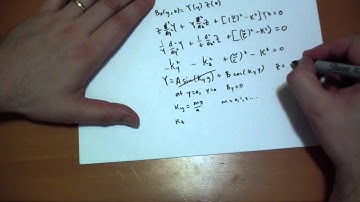 B_x(y,z) = Y(y) Z(z)
Z d²/dy² Y + Y d²/dz² Z + [(ω/c)² - k²] YZ = 0
1/Y d²/dy² Y + 1/Z d²/dz² Z + [(ω/c)² - k²] = 0
-k_y² - k_z² + (ω/c)² - k² = 0
Y = A sin(k_y y) + B cos(k_y y) Z =
at y=0, y=a B_y = 0
k_y = mπ/a m = 0, 1, 2 ....
k_z